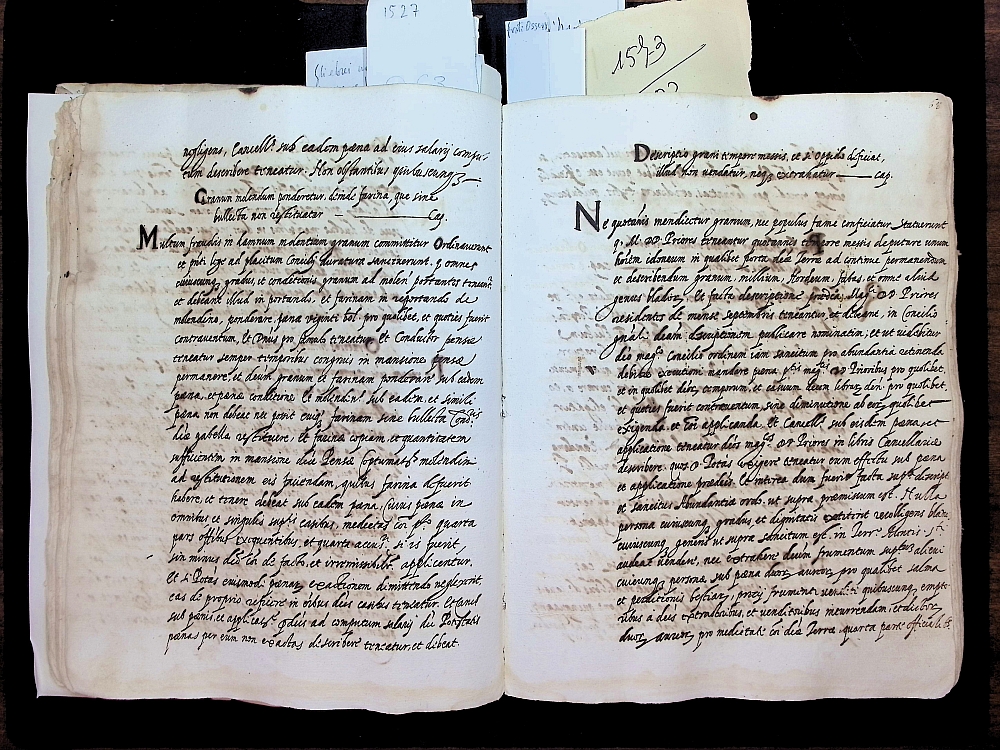 1527
1573
negligens, Cancell.s sub eadem pæna ad eius salarij compu-
tum describere teneatur. Non obstantibus quibuscunq3
Granum molendum ponderetur, deinde farina, quæ sine
bulletta non restituatur Cap.
Multum fraudis in damnum molentium granum committitur Ordinaverunt
et pñti lege ad placitum Concilij duratura sanxinerunt. q. omnes
cuiuscunq gradus, et conditionis granum ad molend portantes teneant.
et debeant illud in portando, et farinam in reportando de
molendino, ponderare, pæna viginti bol. pro qualibet, et quoties fuerit
contraventum, et Onus pro famulo teneatur. Et Conductor pensæ
teneatur semper temporibus congruis in mansione pensæ
permanere, et deum granum et farinam ponderare sub eadem
pæna, et pænæ conditione. Et molendin.s sub eadem, et simili
pæna non debeat nec possit cuiq farinam sine bulletta
dictæ gabellæ restituere: et farinæ copiam et quantitatem
sufficientem in mansione dictæ Pensæ sumptib molendin
ad restitutionem eis faciendam, quibus farina defuerit
habere, et tenere debeat sub eadem pæna, Cuius pænæ in
omnibus et singulis sup.tis casibus, medietas coi p.to quarta
pars offitio exequentibus, et quarta accus.ri si is fuerit,
sin minus dictæ coi de facto, et irremissibilr applicentur.
Et si Potas cuiusmodi pænar exactionem dimittendo neglexerit,
eas de proprio reficere in oibus dictis casibus teneatur. Et Canc
sub pænis, et applicat.e p.dictis ad computum salarij dicti Potestatis
pænas per eum non exactas describere teneatur, et debeat.
Descriptio grani tempore messis, et si oppido deficiat,
illud non vendatur, neq3 extrahatur cap.
Ne quotannis mendicetur granum, nec populus fame conficiatur Statuerunt
q. M. DD. Priores teneantur quotannis tempore messis deputare unum
hoiem idoneum in qualibet porta dictæ Terræ ad continue permanendum
et describendum granum, millium, hordeum, fabas, et omne aliud
genus bladorz, Et facta descriptione prædicta, Mag.ci DD. Priores
residentes de mense septembris teneantur, et debeant, in Concilio
gñali deam descriptionem publicare nominatim, et ut viderbitur
dicto mag.co Concilio ordinem iam sancitum pro abundantia retinenda
debitæ executioni mandare pæna p.tis mag.cis DD. Prioribus pro qualibet,
et in quolibet dictorz temporum, et casuum decem librarz den. pro quolibet,
et quoties fuerit contraventum, sine diminutione ab eorz quolibet
exigenda, et coi applicanda, et Cancell.s sub eisdem pæna, et
applicatione teneatur dictos mag.cos DD. Priores in libro Cancellariæ
describere. quos D. Potas exigere teneatur cum effectu sub pæna
et applicatione prædictis. Et interea dum fuerit facta sup.ta descript.
et sancitus Abundantiæ ordo, ut supra præmissum est. Nulla
persona cuiuscunq gradus, et dignitatis extiterit recolligens blada
cuiuscunq generis ut supra sancitum est, in Terr.o
audeat vendere, nec extrahere deum frumentum sup.tum alicui
cuicunq personæ, sub pæna duorz aureorz pro qualibet salma
et perditionis bestiarz, precij frumenti venditi quibuscunq empto
ribus a dictis extractoribus, et venditoribus incurrendam, et dictorz
duorz aureorz pro medietate coi dictæ Terræ, quarta pars officiali